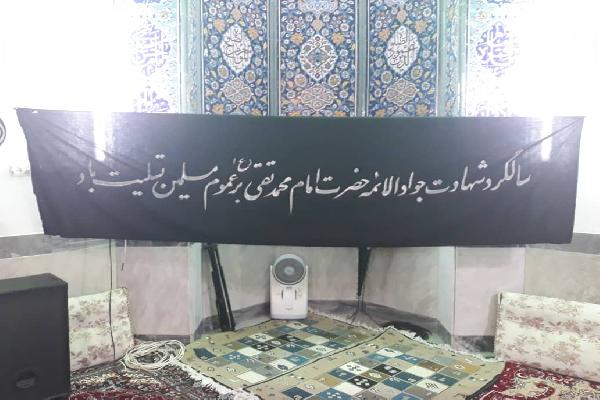 سالگرد شهادت جواد الائمه حضرت امام محمد تقی (ع) بر عموم مسلمین تسلیت باد